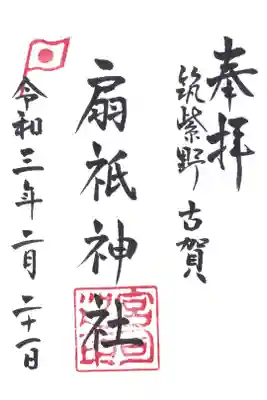 奉拝
筑紫野 古賀
扇祇神社
令和三年二月二十一日